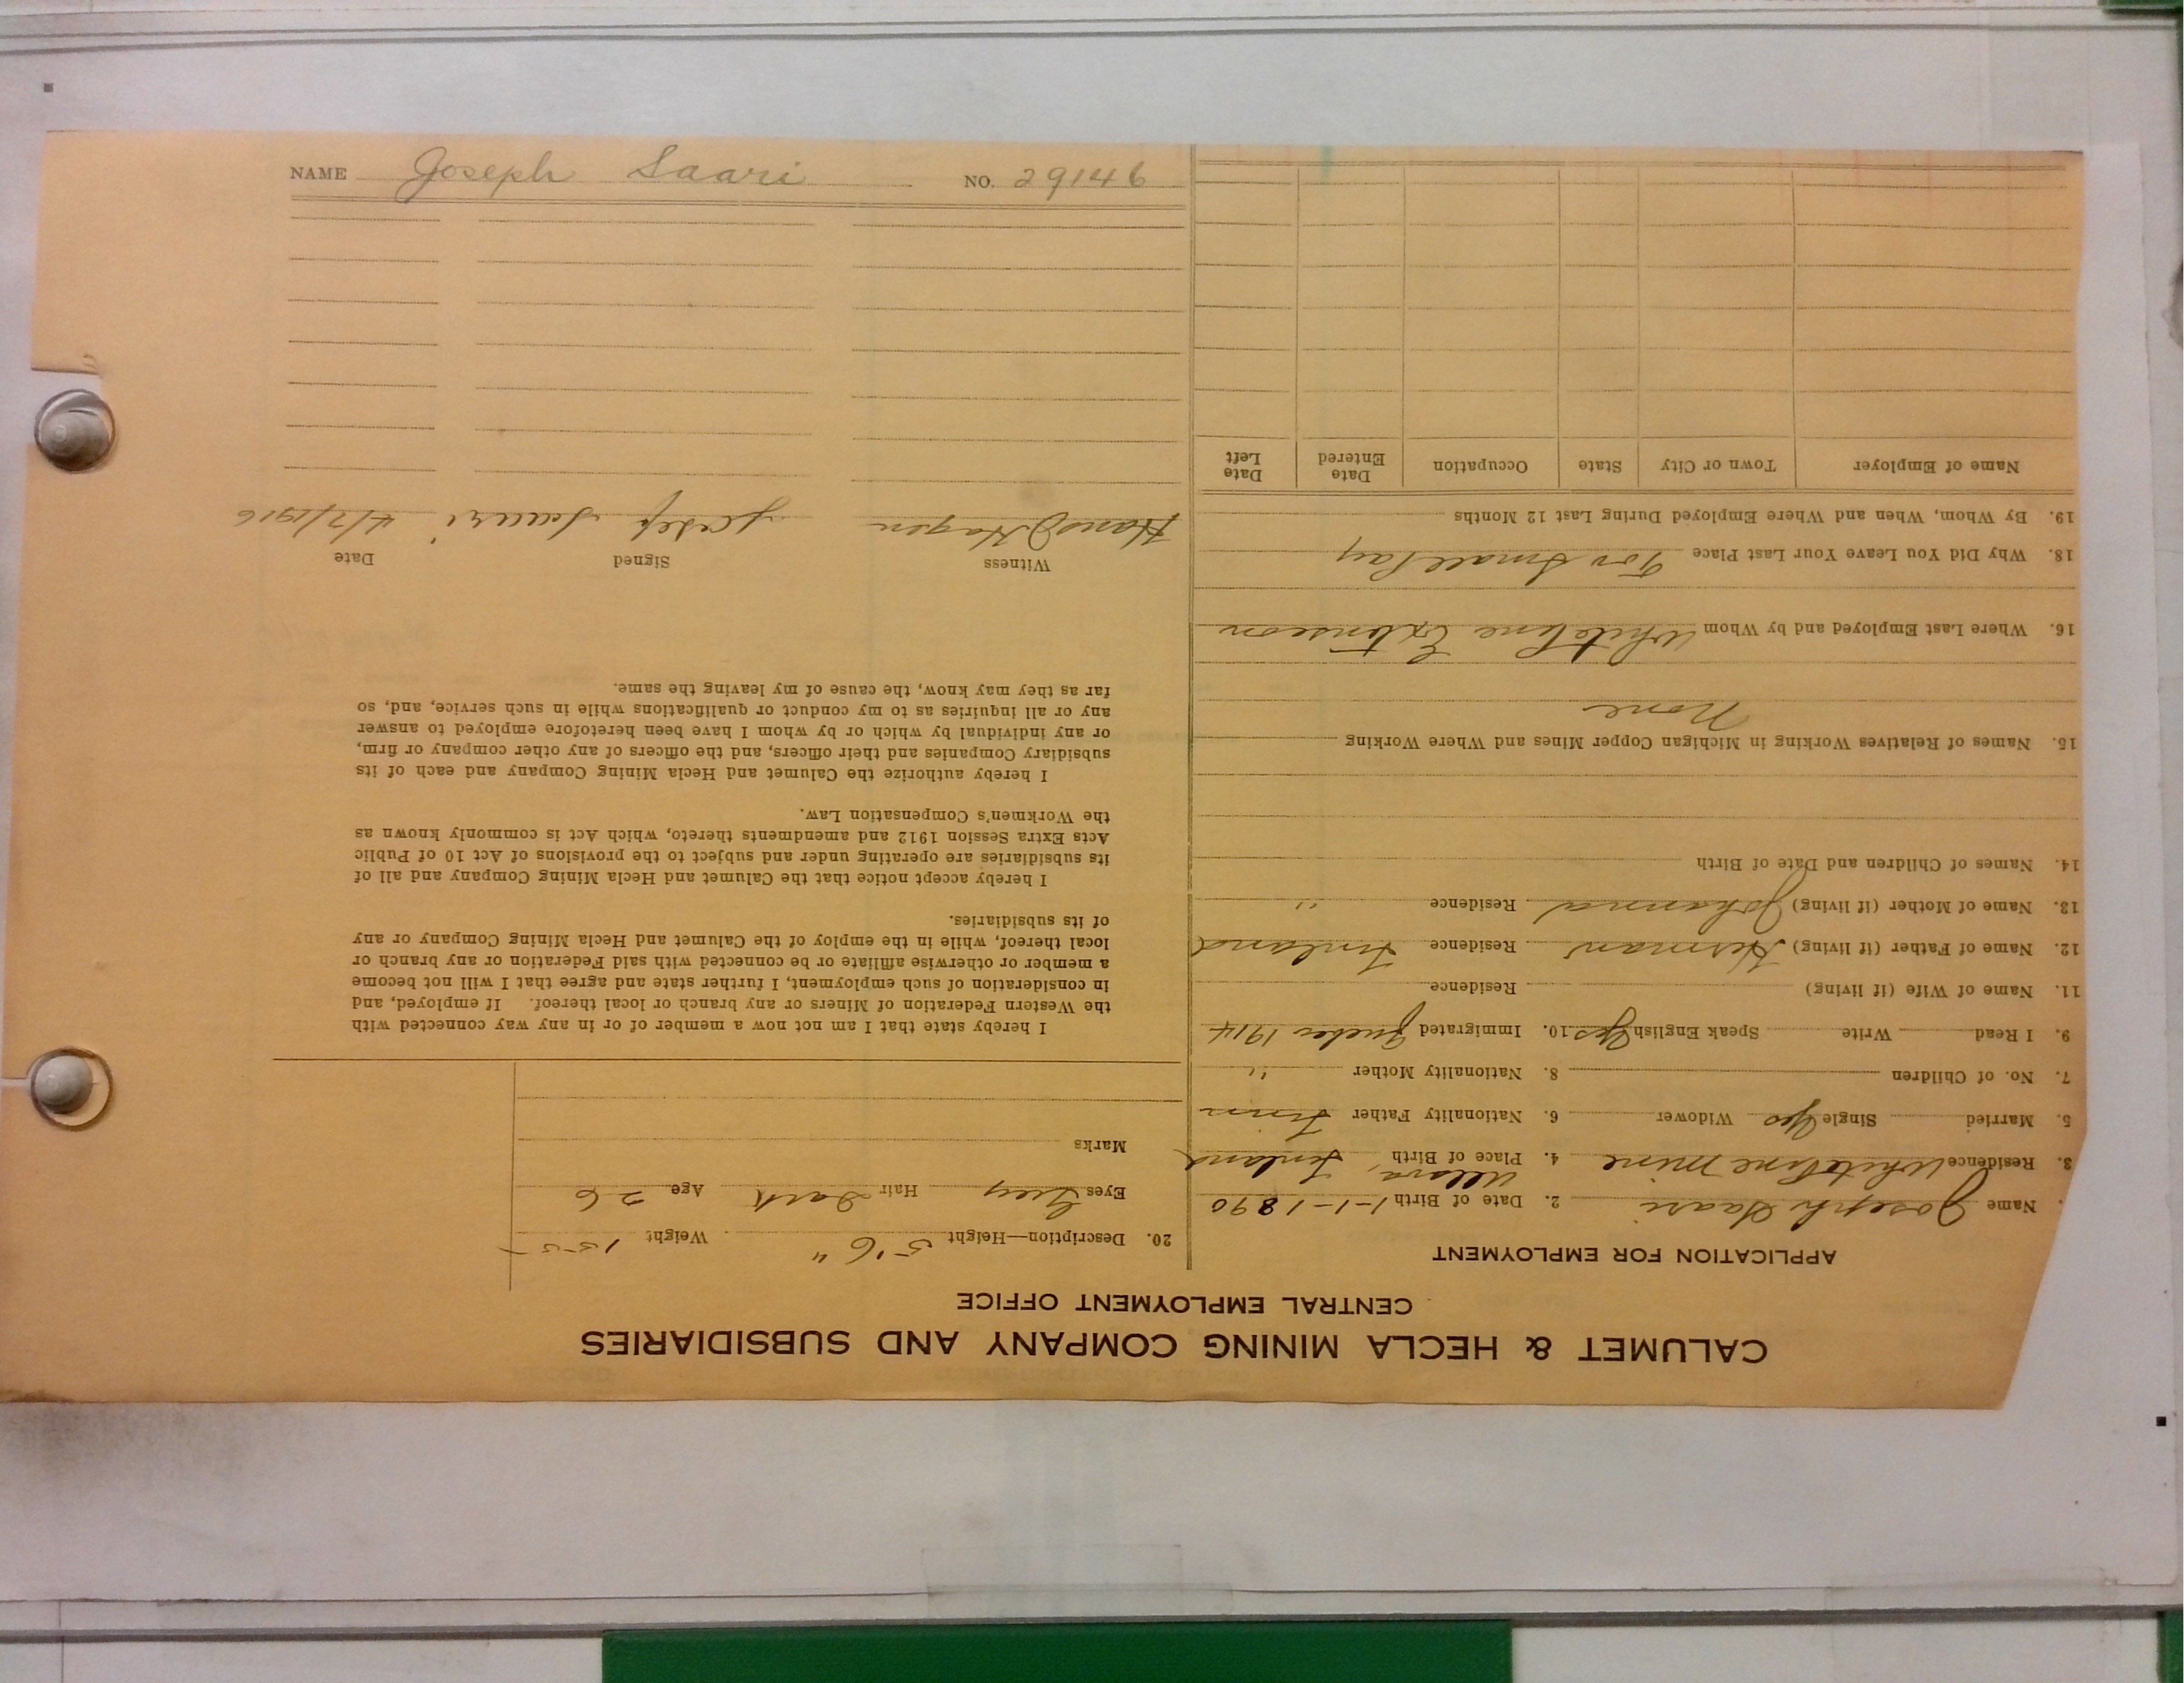 NAME Joseph Saari NO. 29146
CALUMET & HECLA MINING COMPANY AND SUBSIDIARIES
CENTRAL EMPLOYMENT OFFICE
APPLICATION FOR EMPLOYMENT
Name Joseph Saari 2. Date of Birth 1-1-1890
3. Residence White Pine Mine 4. Place of Birth Finland
5. Married Single Yes Widower 6. Nationality Father Finn
7. No. of Children 8. Nationality Mother "
9. I Read Write Speak English Yes 10. Immigrated Quebec 1914
11. Name of Wife (if living) Residence
12. Name of Father (if living) Herman Residence Finland
13. Name of Mother (if living) Johanna Residence "
14. Names of Children and Date of Birth
15. Names of Relatives Working in Michigan Copper Mines and Where Working
None
16. Where Last Employed and by Whom White Pine Extension
18. Why Did You Leave Your Last Place Too Small Pay
19. By Whom, When and Where Employed During Last 12 Months
Name of Employer Town or City State Occupation Date Entered Date Left
20. Description—Height 5'6" Weight 155
Eyes Grey Hair Dark Age 26
Marks
I hereby state that I am not now a member of or in any way connected with
the Western Federation of Miners or any branch or local thereof. If employed, and
in consideration of such employment, I further state and agree that I will not become
a member or otherwise affiliate or be connected with said Federation or any branch or
local thereof, while in the employ of the Calumet and Hecla Mining Company or any
of its subsidiaries.
I hereby accept notice that the Calumet and Hecla Mining Company and all of
its subsidiaries are operating under and subject to the provisions of Act 10 of Public
Acts Extra Session 1912 and amendments thereto, which Act is commonly known as
the Workmen's Compensation Law.
I hereby authorize the Calumet and Hecla Mining Company and each of its
subsidiary Companies and their officers, and the officers of any other company or firm,
or any individual by which or by whom I have been heretofore employed to answer
any or all inquiries as to my conduct or qualifications while in such service, and, so
far as they may know, the cause of my leaving the same.
Witness Signed Date
Hagen Josef Saari 4/7/1916